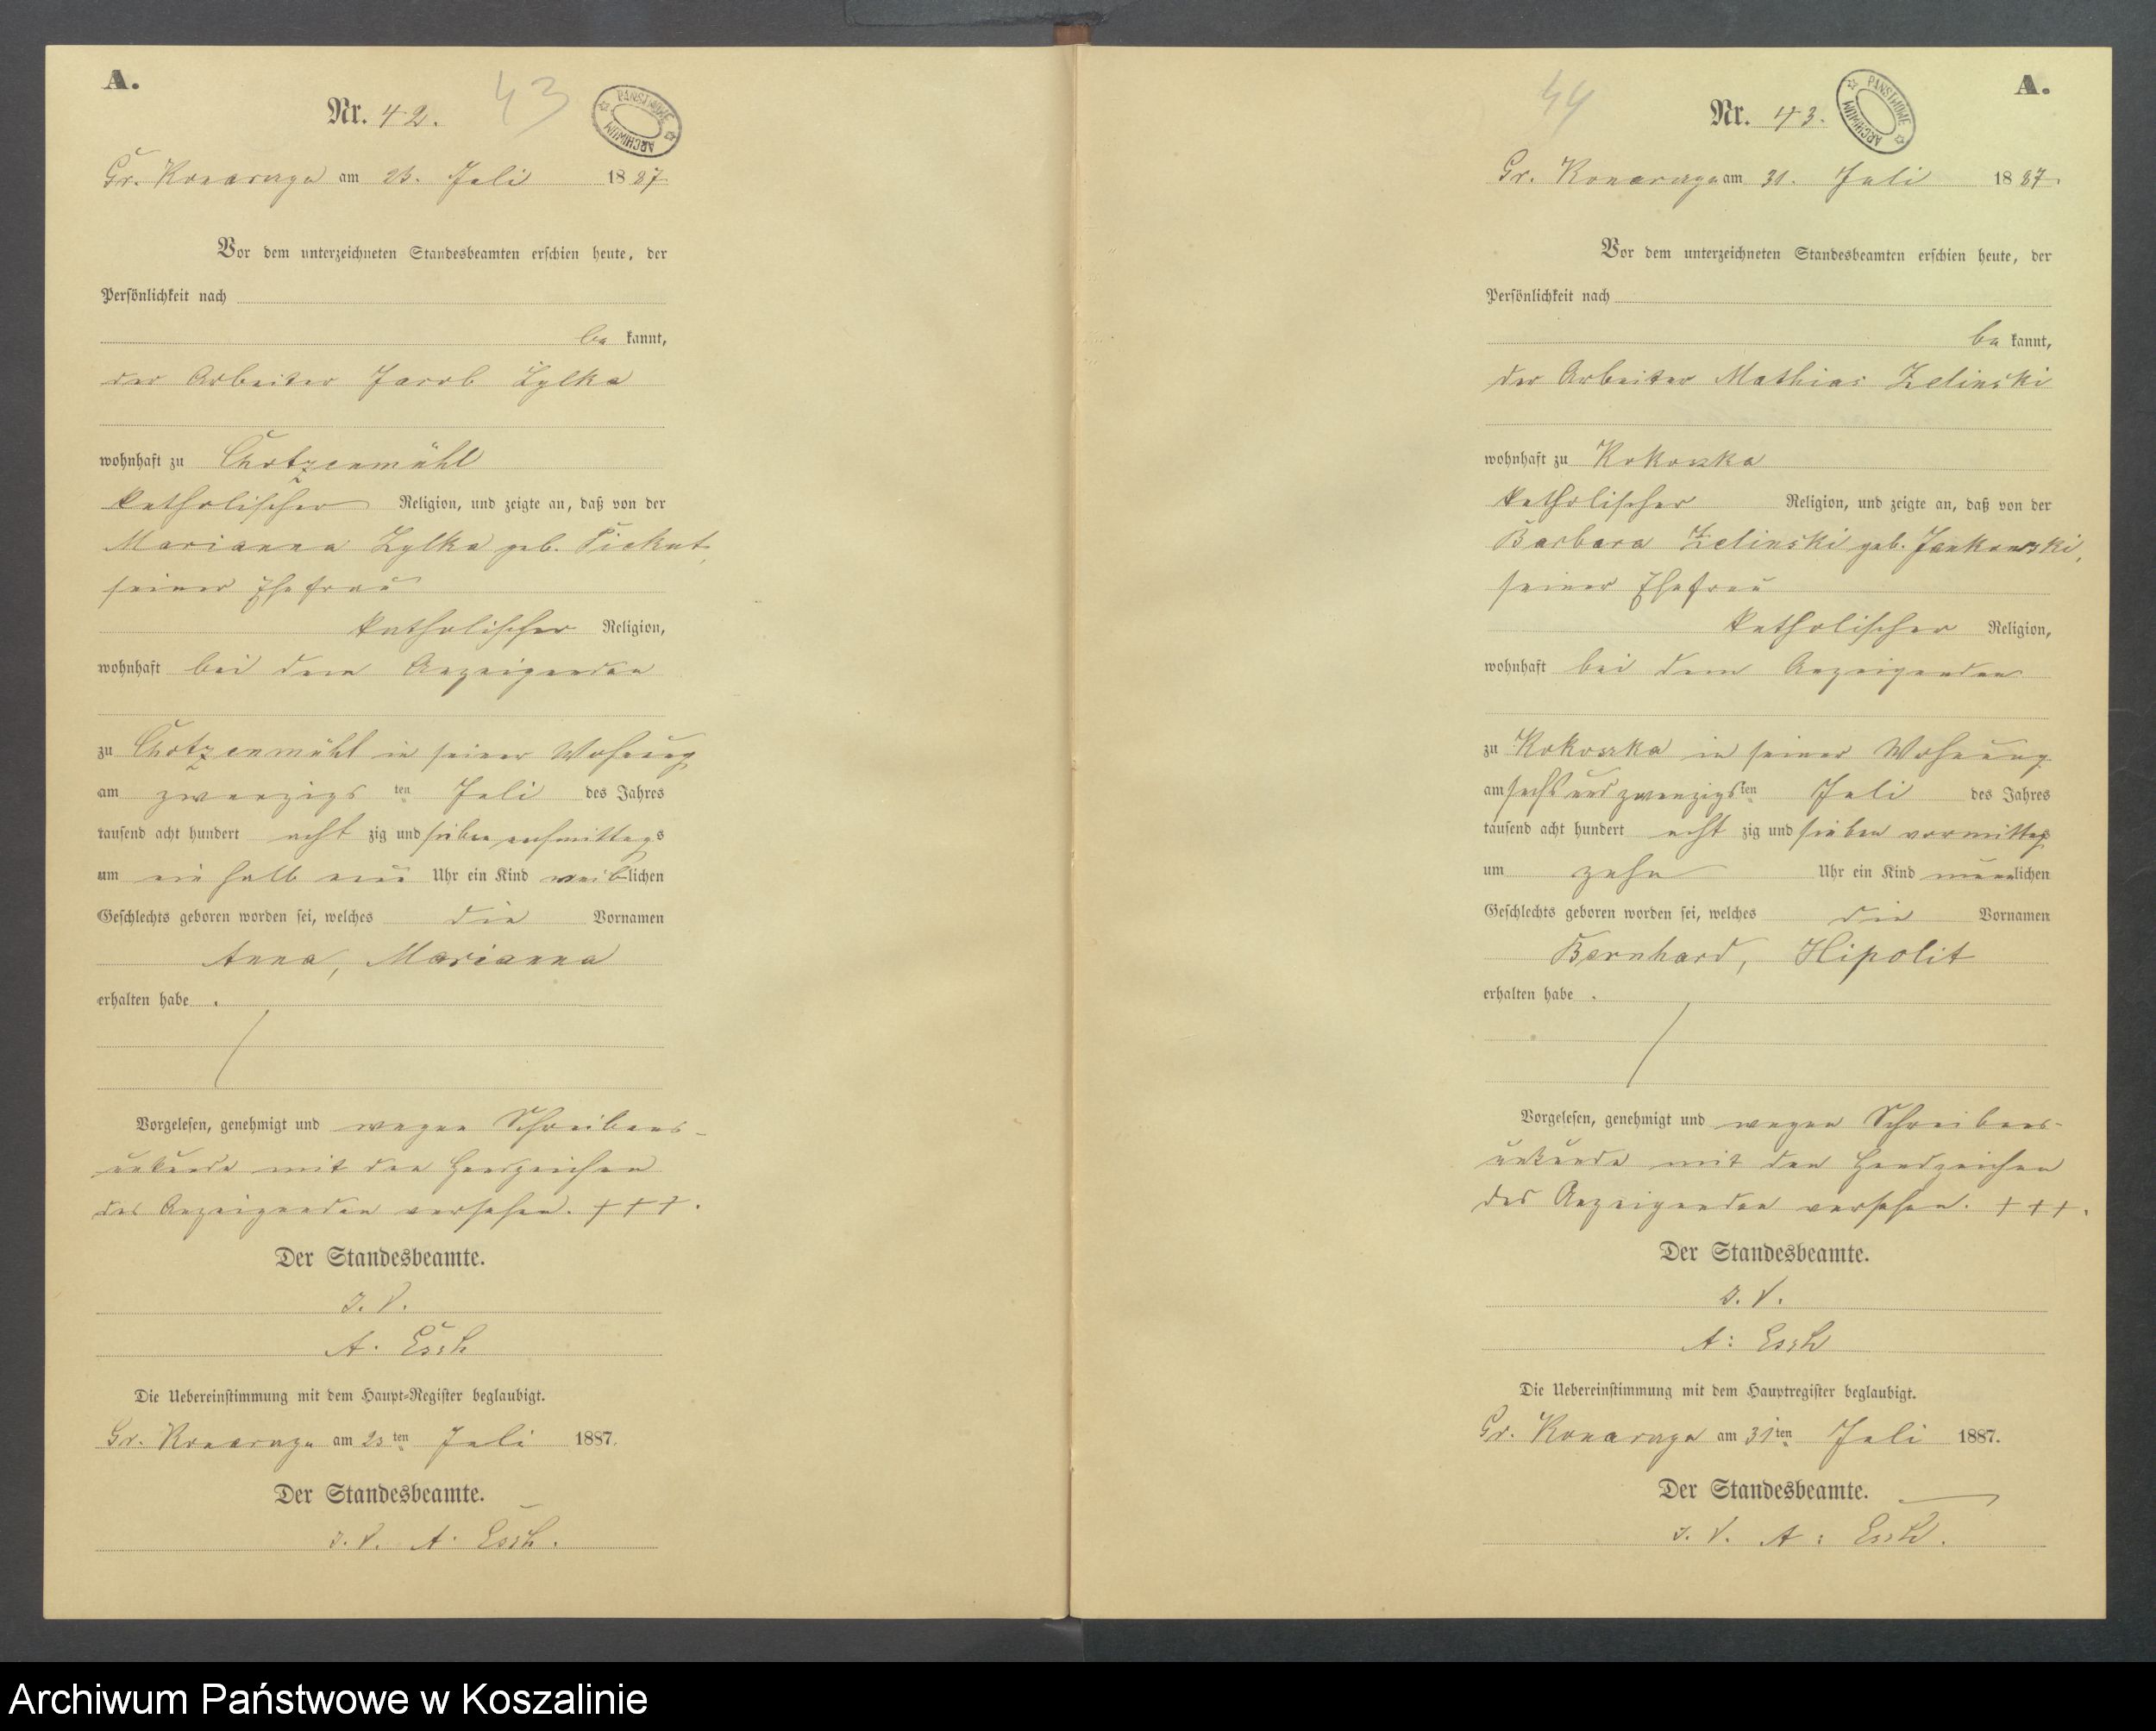 A.
Nr. 42.
43
PAŃSTWOWE ARCHIWUM
Gr. Konarzyn am 23. Juli 1887.
Vor dem unterzeichneten Standesbeamten erschien heute, der
Persönlichkeit nach
be kannt,
der Arbeiter Jacob Zylka
wohnhaft zu Chotzenmühl
katholischer Religion, und zeigte an, daß von der
Marianna Zylka geb. Piekut,
seiner Ehefrau
katholischer Religion,
wohnhaft bei dem Anzeigenden
zu Chotzenmühl in seiner Wohnung
am zwanzigs ten Juli des Jahres
tausend acht hundert acht zig und sieben nachmittags
um ein halb neun Uhr ein Kind weiblichen
Geschlechts geboren worden sei, welches die Vornamen
Anna, Marianna
erhalten habe.
Vorgelesen, genehmigt und wegen Schreibens-
unkunde mit den Handzeichen
des Anzeigenden versehen. +++.
Der Standesbeamte.
I. V.
A. Esch
Die Uebereinstimmung mit dem Haupt-Register beglaubigt.
Gr. Konarzyn am 23 ten Juli 1887.
Der Standesbeamte.
I. V. A. Esch.
A.
Nr. 43.
44
PAŃSTWOWE ARCHIWUM
Gr. Konarzyn am 31. Juli 1887.
Vor dem unterzeichneten Standesbeamten erschien heute, der
Persönlichkeit nach
be kannt,
der Arbeiter Mathias Zelinski
wohnhaft zu Kokoszka
katholischer Religion, und zeigte an, daß von der
Barbara Zelinski geb. Jankowski,
seiner Ehefrau
katholischer Religion,
wohnhaft bei dem Anzeigenden
zu Kokoszka in seiner Wohnung
am sechs und zwanzigs ten Juli des Jahres
tausend acht hundert acht zig und sieben vormittags
um zehn Uhr ein Kind männlichen
Geschlechts geboren worden sei, welches die Vornamen
Bernhard, Hipolit
erhalten habe.
Vorgelesen, genehmigt und wegen Schreibens-
unkunde mit den Handzeichen
des Anzeigenden versehen. +++.
Der Standesbeamte.
I. V.
A: Esch
Die Uebereinstimmung mit dem Hauptregister beglaubigt.
Gr. Konarzyn am 31 ten Juli 1887.
Der Standesbeamte.
I. V. A: Esch.
Archiwum Państwowe w Koszalinie